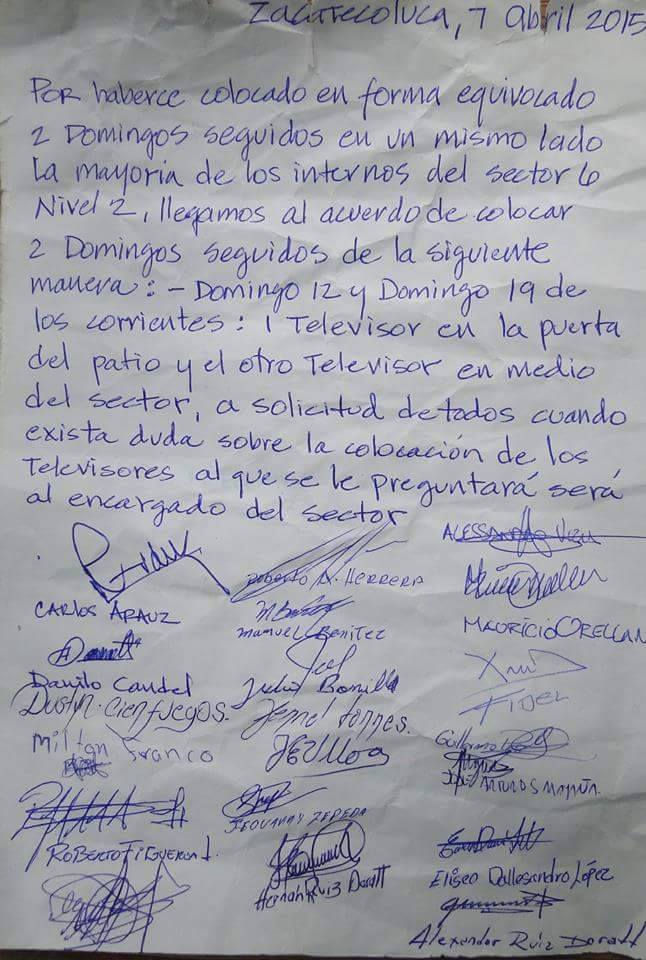 Zacatecoluca, 7 abril 2015
Por haberce colocado en forma equivocado
2 Domingos seguidos en un mismo lado
la mayoria de los internos del sector 6
Nivel 2, llegamos al acuerdo de colocar
2 Domingos seguidos de la siguiente
manera: - Domingo 12 y Domingo 19 de
los corrientes: 1 Televisor en la puerta
del patio y el otro Televisor en medio
del sector, a solicitud de todos cuando
exista duda sobre la colocación de los
Televisores al que se le preguntará será
al encargado del sector
Roberto A. Herrera
Carlos Arauz
Manuel Benitez
Mauricio Orellan
Danilo Candel
Julio Bonilla
Fidel
Dustin. Cienfuegos.
Torres.
Milton Franco
JEUlloa
Guillermo
Jose Arturo S
Jeovanny Zepeda
Roberto Figueroa
Hernán Ruiz Doratt
Eliseo Dallesandro López
Alexander Ruiz Doratt